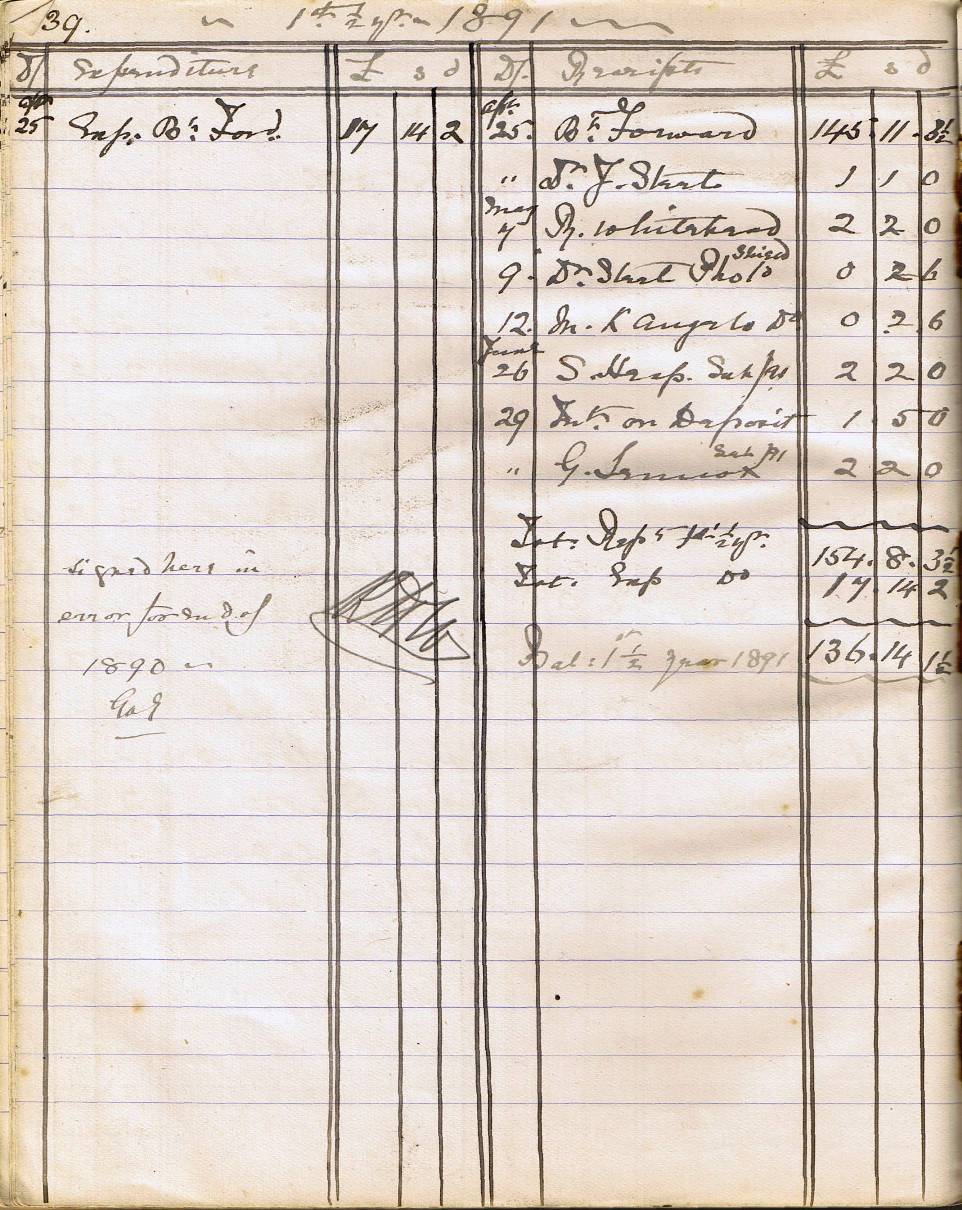 39. 1st ½ yr. 1891
Dt. Expenditure £ s d Dt. Receipts £ s d
Apr Apr.
25 Exp. Bt. Ford. 17 14 2 25. Bt. Forward 145. 11. 8½
" Dr. J. Street 1 1 0
May
7 R. Whitehead 2 2 0
9. Dr. Street Photo 0 2 6
12. M. K Angelo Do 0 2 6
June
26 S. Heap. Sub /91 2 2 0
29 Int. on Deposit 1 5 0
" G. Lennox Sub /91 2 2 0
Tot: Repts 1st ½ yr. 154. 8. 3½
Tot. Exp Do 17. 14 2
Bal: 1st ½ year 1891 136. 14 1½
Signed here in
error for end of
1890